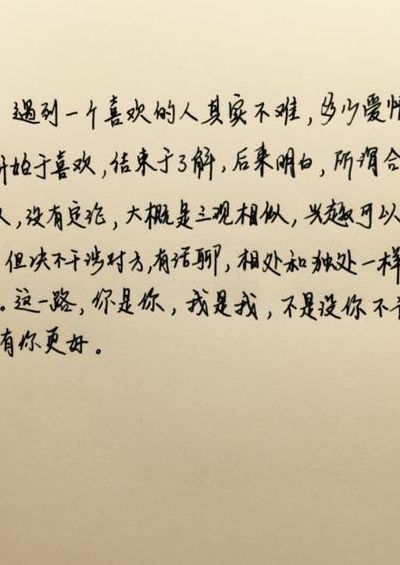 遇到一个喜欢的人其实不难，多少爱情
开始于喜欢，结束于了解，后来明白，所谓合
人，没有定论，大概是三观相似，兴趣可以
但决不干涉对方，有话聊，相处和独处一样
。这一路，你是你，我是我，不是没你不
有你更好。